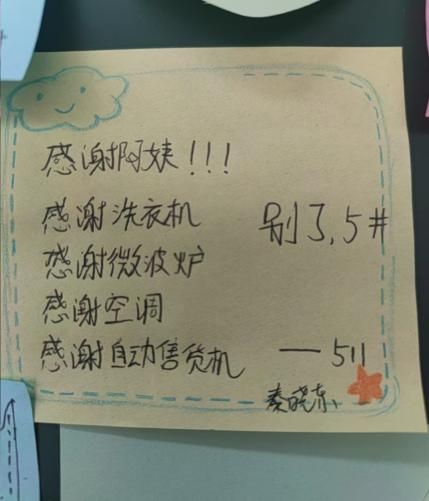 感谢阿姨!!!
感谢洗衣机
别了,5#
感谢微波炉
感谢空调
感谢自动售货机
——511
秦晓东